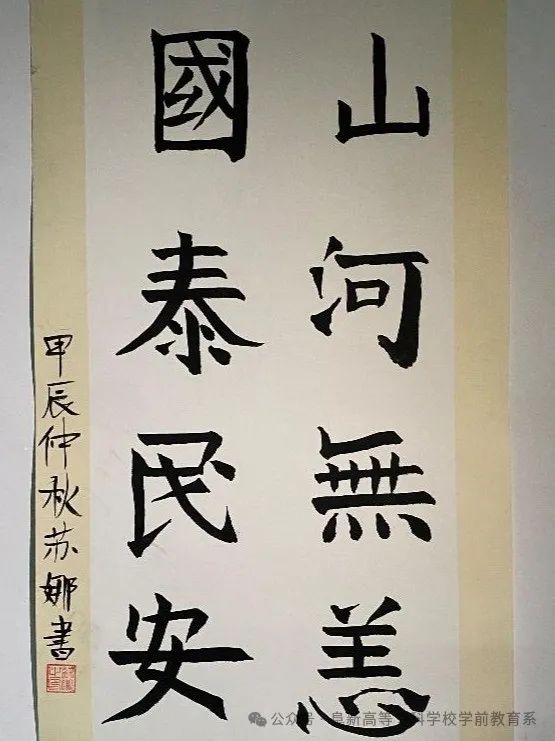 山河無恙
國泰民安
甲辰仲秋苏娜書
公众号·阜新高等专科学校学前教育系